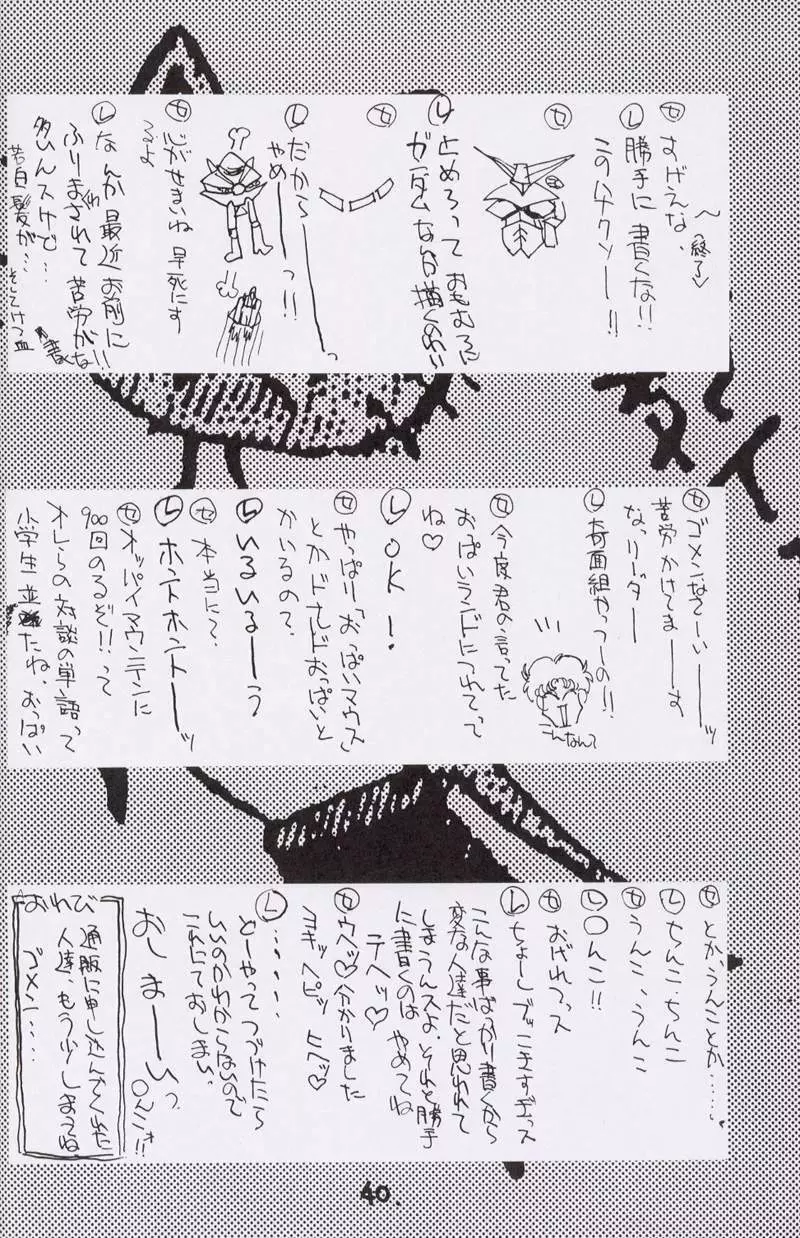 ㋝ すげえな、
～ 終了♡
㋹ 勝手に書くな!!
このハナクソー!!
㋝
㋹ 止めろって おもむろに
ガンダムなんか描くのわい
㋝
㋹ だからーーーっ
やめーーっ!!
㋝ 心がせまいね 早死にす
るよ
㋹ なんか最近お前に!!
ふりまわされて苦労がな
多いんスけど…
若白髪が…
そしてけつ血
㋝ ゴメンなさーいーーッ
苦労かけてまーーす
なっリーダー
㋹ 奇面組かっつーの!!
こんなんて
㋝ 今度君の言ってた
おっぱいランドにつれてって
ね♡
㋹ OK!
㋝ やっぱり「おっぱいマウス」
とかドナルドおっぱいと
かいるの?
㋹ いるいるーーう
㋝ 本当に?
㋹ ホントホントーーッ
㋝ オッパイマウンテンに
900回のるぞ!!って
オレらの対談の単語って
小学生並みたね、おっぱい
㋝ とかうんことか……
㋹ ちんこ、ちんこ
㋝ うんこ、うんこ
㋹ ○んこ!!
㋝ おげれつっス
㋹ ちょーしブッこきすぎっス
こんな事ばっかり書くから
変な人達だと思われて
しまうんスよ、それと勝手
に書くのは やめてね
テヘッ♡
㋝ ウヘッ♡分かりました
ヨキッ ヘピッ ヒヘッ♡
㋹ ……
どーやってつづけたら
いいのかわからないので
これにておしまい、
おしまーいっ
○んこ!!
おわび
通販に申し込んでくれた
人達、もう少しまってね
ゴメン…
40.